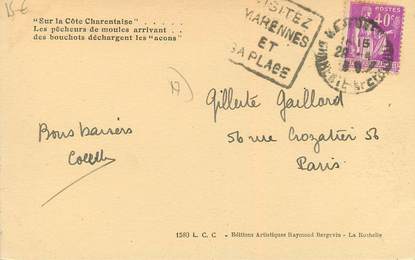 15€
"Sur la Côte Charentaise" . . . .
Les pêcheurs de moules arrivant . . .
des bouchots déchargent les "acons"
VISITEZ
MARENNES
ET
SA PLAGE
POSTES
40c
17
Bons baisers
Gilberte Gaillard
56 rue Crozatier 56
Paris
1580 L. C. C. - Editions Artistiques Raymond Bergevin - La Rochelle